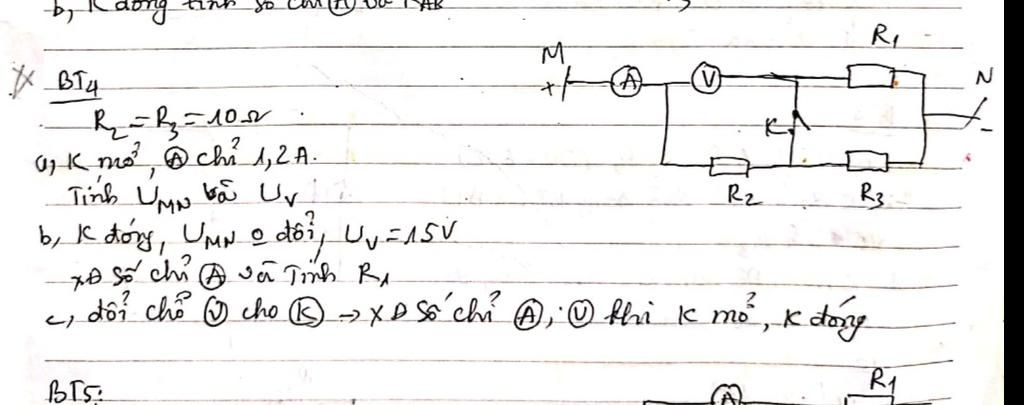 b, K đóng tính số chỉ Ⓐ và RAB
BT4
R2 = R3 = 10Ω
a, K mở, Ⓐ chỉ 1,2A.
Tính UMN và UV
b, K đóng, UMN o đổi, UV = 15V
xĐ số chỉ Ⓐ và Tính R1
c, đổi chỗ Ⓥ cho Ⓚ → xĐ số chỉ Ⓐ, Ⓥ khi K mở, K đóng
M
+
A
V
R1
N
-
K
R2
R3
BT5:
A
R1